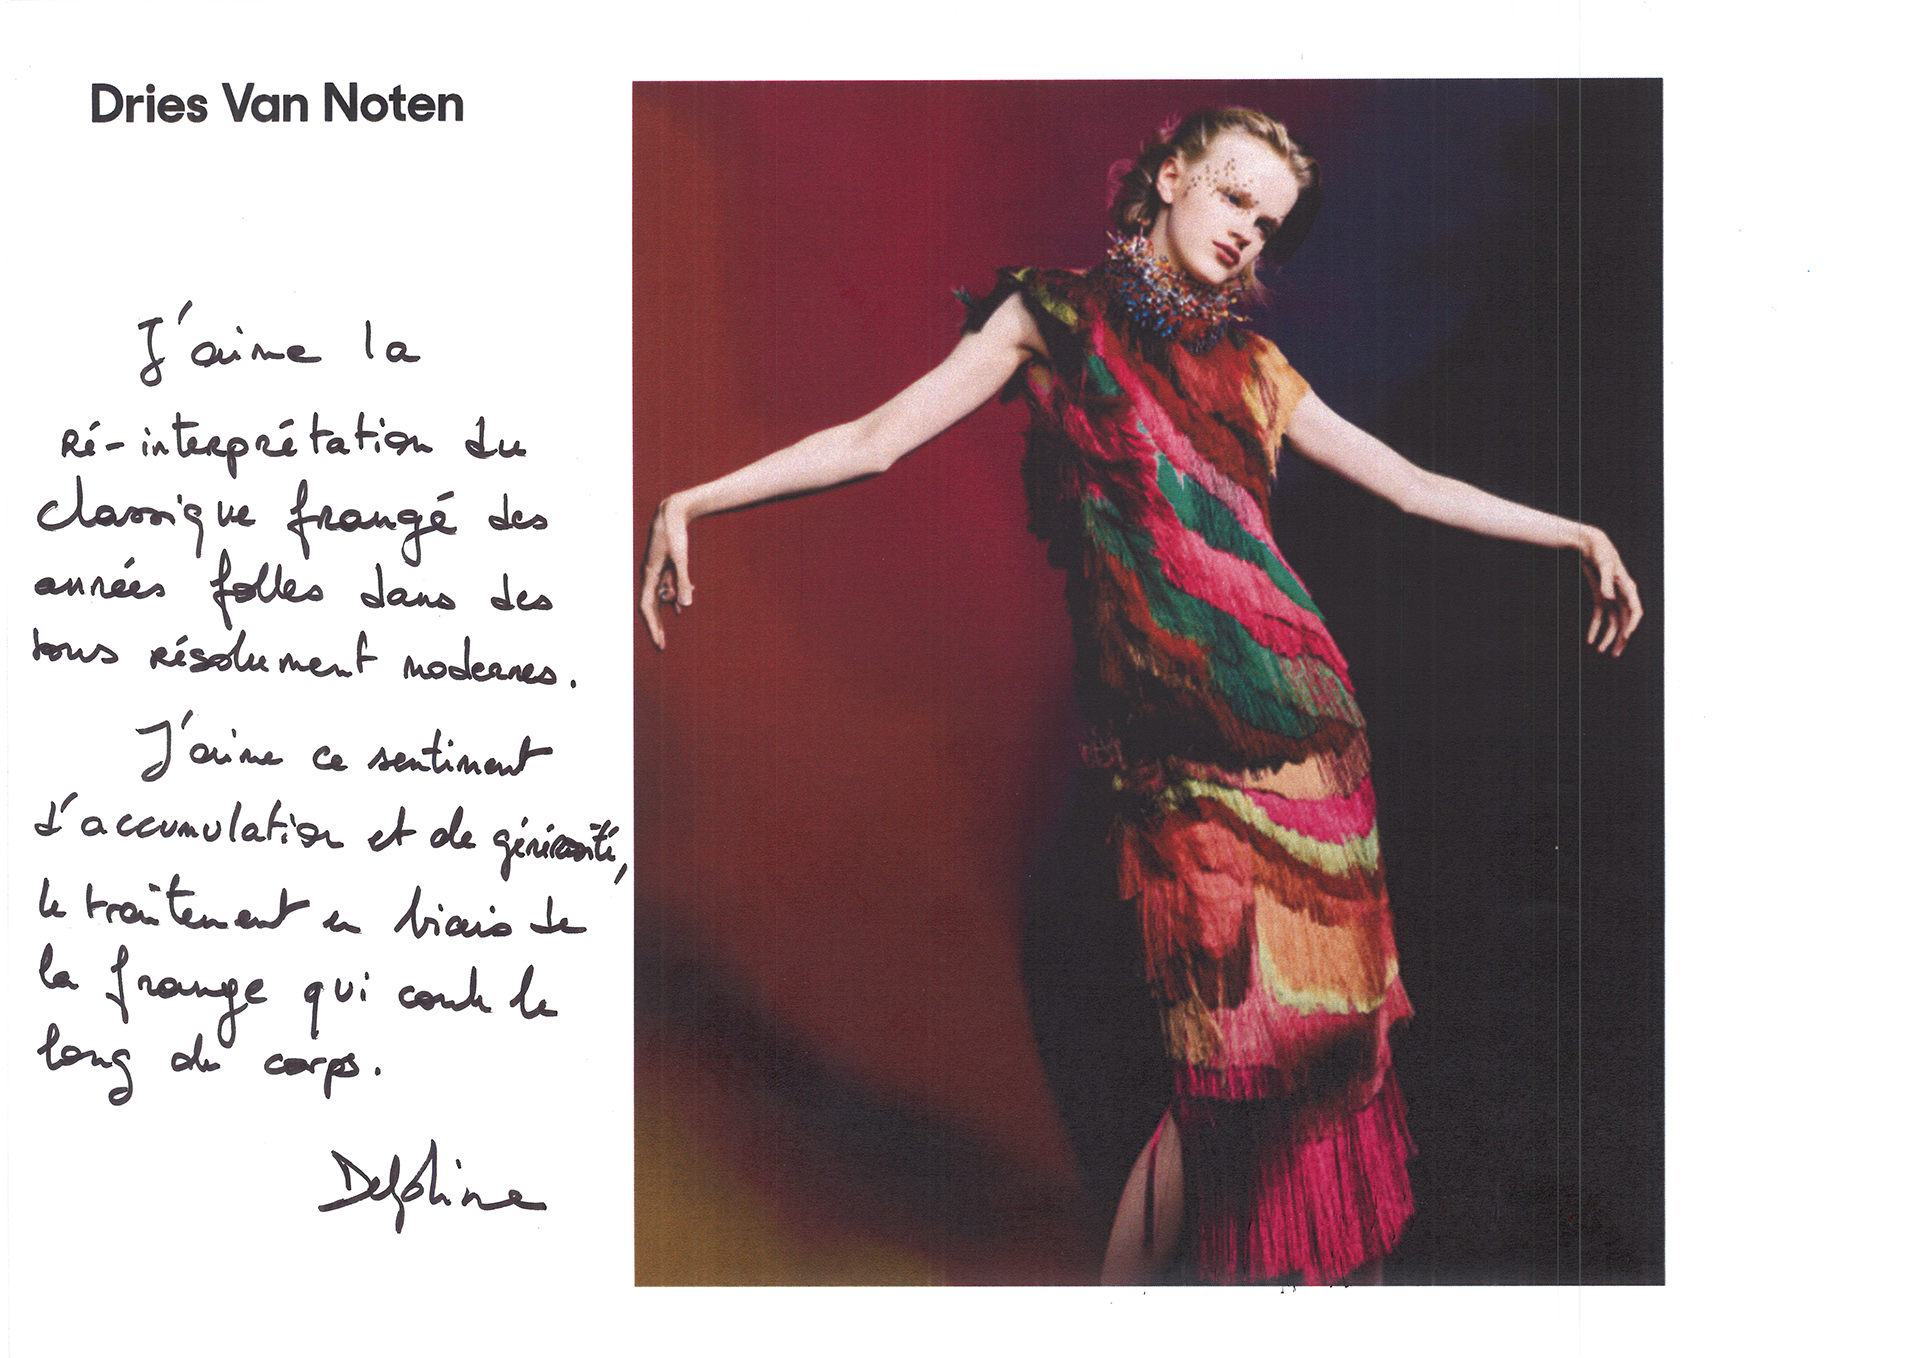 Dries Van Noten
J'aime la
ré-interprétation du
classique frangé des
années folles dans des
tons résolument modernes.
J'aime ce sentiment
d'accumulation et de générosité,
le traitement en biais de
la frange qui coule le
long du corps.
Delphine